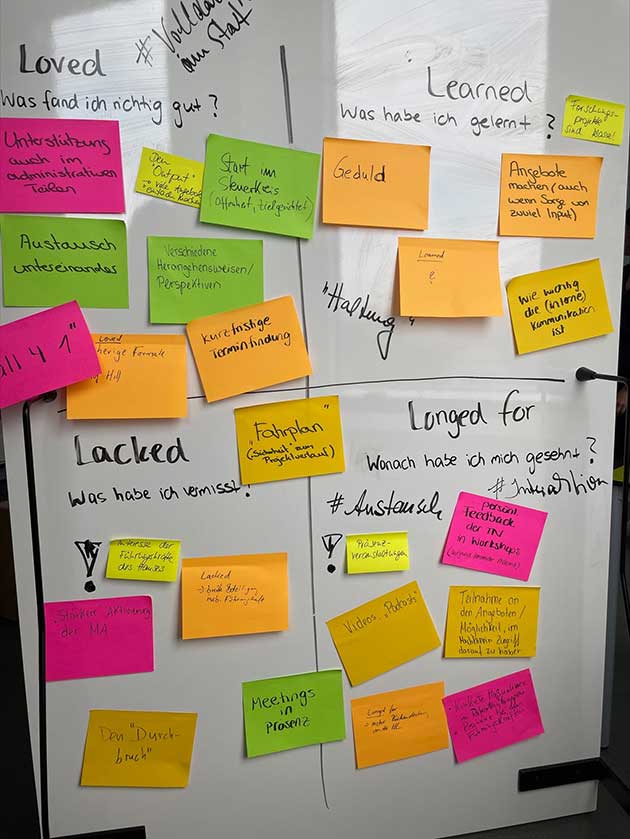 Loved
Was fand ich richtig gut?
Unterstützung
auch im
administrativen
Teilen
Den
"Output"
Start im
Steuerkreis
(offenheit, zielgerichtet)
Austausch
untereinander
Verschiedene
Herangehensweisen/
Perspektiven
all 4 1"
Loved
Formate
kurzfristige
Terminfindung
Learned
Was habe ich gelernt?
Forschungs-
projekte
sind klasse!
Geduld
Angebote
machen (auch
wenn Sorge vor
zuviel Input)
Learned
?
"Haltung"
Wie wichtig
die (interne)
Kommunikation
ist
Lacked
Was habe ich vermisst?
"Fahrplan"
("Sicherheit" zum
Projektverlauf)
Interesse der
Führungskräfte
des Hauses
Lacked
Stärkere Aktivierung
der MA
Meetings
in
Präsenz
Den "Durch-
bruch"
Longed for
Wonach habe ich mich gesehnt?
#Interaktion
#Austausch
Präsenz-
veranstaltungen
persönl.
Feedback
der TN
in Workshops
Videos, "Podcasts"
Teilnahme an
den Angeboten/
Möglichkeit, im
Nachhinein Zugriff
darauf zu haben
Longed for